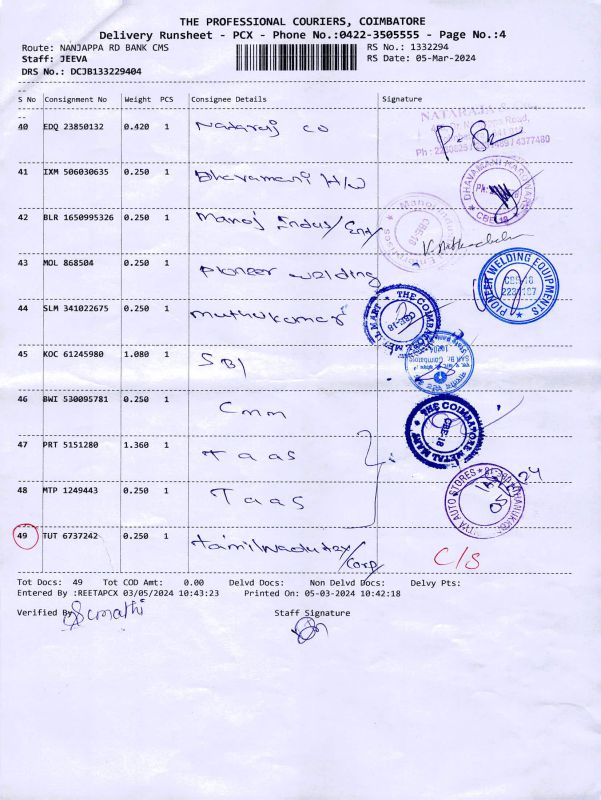 THE PROFESSIONAL COURIERS, COIMBATORE
Delivery Runsheet - PCX - Phone No.:0422-3505555 - Page No.:4
Route: NANJAPPA RD BANK CMS RS No.: 1332294
Staff: JEEVA RS Date: 05-Mar-2024
DRS No.: DCJB133229404
S No Consignment No Weight PCS Consignee Details Signature
40 EDQ 23850132 0.420 1 Nataraj co
41 IXM 506030635 0.250 1 Bhavamani H/W
DHAVAMANI HARDWARE
CBE-18
42 BLR 1650995326 0.250 1 Manoj Indus/End
CBE-18
43 MOL 868504 0.250 1 pioneer welding
PIONEER WELDING EQUIPMENTS
CBE-18
44 SLM 341022675 0.250 1 muthukumar
THE COIMBATORE METAL MART
CBE-18
45 KOC 61245980 1.080 1 SBI
46 BWI 530095781 0.250 1 Cmm
THE COIMBATORE METAL MART
CBE-18
47 PRT 5151280 1.360 1 Taas
48 MTP 1249443 0.250 1 Taas
AUTO STORES
49 TUT 6737242 0.250 1 tamilnadu tex/corp
C/S
Tot Docs: 49 Tot COD Amt: 0.00 Delvd Docs: Non Delvd Docs: Delvy Pts:
Entered By :REETAPCX 03/05/2024 10:43:23 Printed On: 05-03-2024 10:42:18
Verified By Sumathi Staff Signature